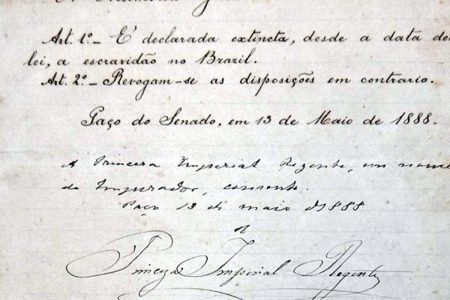 Art. 1º_ E' declarada extincta, desde a data de
lei, a escravidão no Brazil.
Art. 2º_ Revogam-se as disposições em contrario.
Paço do Senado, em 13 de Maio de 1888.
A Princesa Imperial Regente, em nome
do Imperador, consente.
Paço 13 de maio de 1888
Princeza Imperial Regente